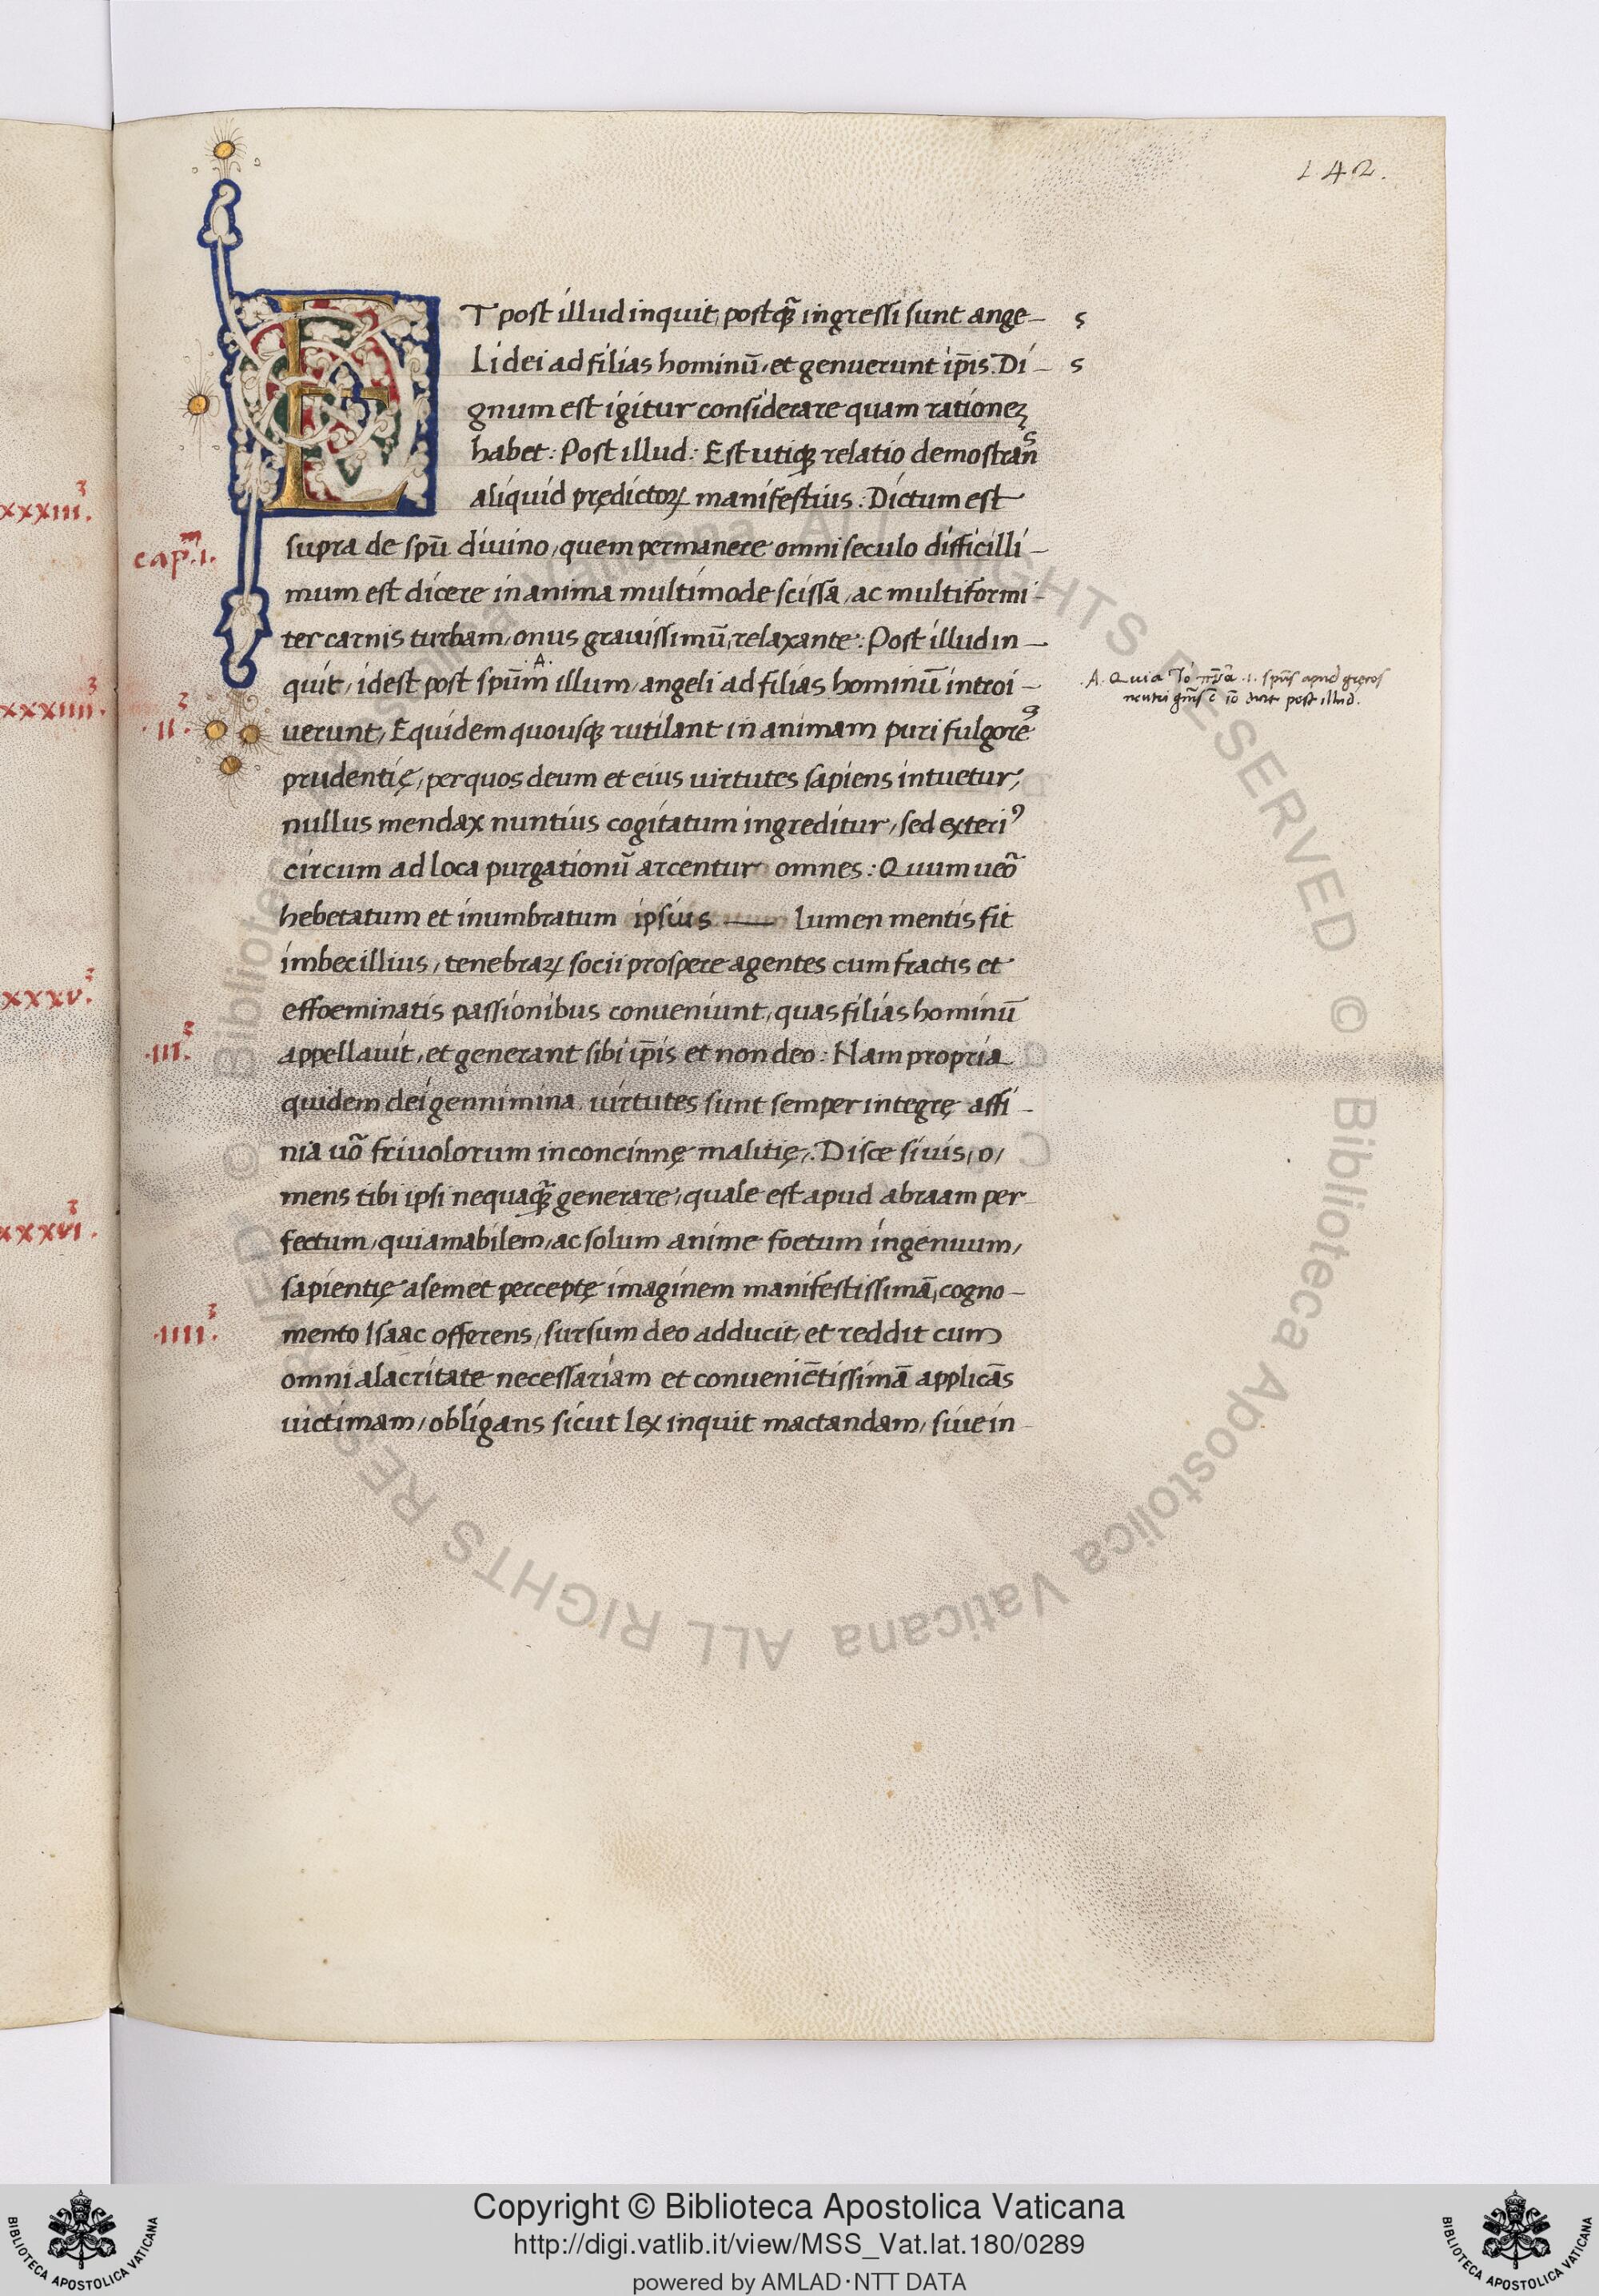 142.
ET post illud inquit, postq̃ ingressi sunt ange- s
li dei ad filias hominū, et genuerunt ip̄is. Di- s
gnum est igitur considerare quam rationeʒ
habet: Post illud: Est utiqꝫ relatio demostrañs
aliquid prędictoꝝ manifestius: Dictum est
supra de spū divino, quem permanere omni seculo difficilli-
mum est dicere in anima multimode scissa, ac multiformi-
ter carnis turbam, onus gravissimū, relaxante: Post illud in-
quit, idest post spūm .A. illum, angeli ad filias hominū introi-
uerunt, Equidem quousqꝫ rutilant in animam puri fulgores
prudentię, per quos deum et eius virtutes sapiens intuetur,
nullus mendax nuntius cogitatum ingreditur, sed exteriꝰ
circum ad loca purgationū arcentur omnes: Quum ueõ
hebetatum et inumbratum ipsius — lumen mentis fit
imbecillius, tenebraꝝ socii prospere agentes cum fractis et
effoeminatis passionibus conveniunt, quas filias hominū
appellauit, et generant sibi ip̄is et non deo: Nam propria
quidem dei gennimina virtutes sunt semper integrę affi-
nia uõ frivolorum inconcinnę malitię. Disce si uis, o,
mens tibi ipsi nequaq̃ generare, quale est apud abraam per
fectum, qui amabilem, ac solum anime foetum ingenuum,
sapientię a semet perceptę imaginem manifestissimā, cogno-
mento Isaac offerens, sursum deo adducit, et reddit cum
omni alacritate necessariam et conveniētissimā applicās
uictimam, obligans sicut lex inquit mactandam, siue in
.A. Quia Tò πν̄α .i. spūs apud gręcos
neutri gn̄is ē iō dixit post illud.
capᵐ.i.
.ii.
.iii.
.iiii.
xxxiii.
xxxiiii.
xxxv.
xxxvi.
© Biblioteca Apostolica Vaticana ALL RIGHTS RESERVED © Biblioteca Apostolica Vaticana ALL RIGHTS RESERVED
Copyright © Biblioteca Apostolica Vaticana
http://digi.vatlib.it/view/MSS_Vat.lat.180/0289
powered by AMLAD·NTT DATA
BIBLIOTECA APOSTOLICA VATICANA
BIBLIOTECA APOSTOLICA VATICANA